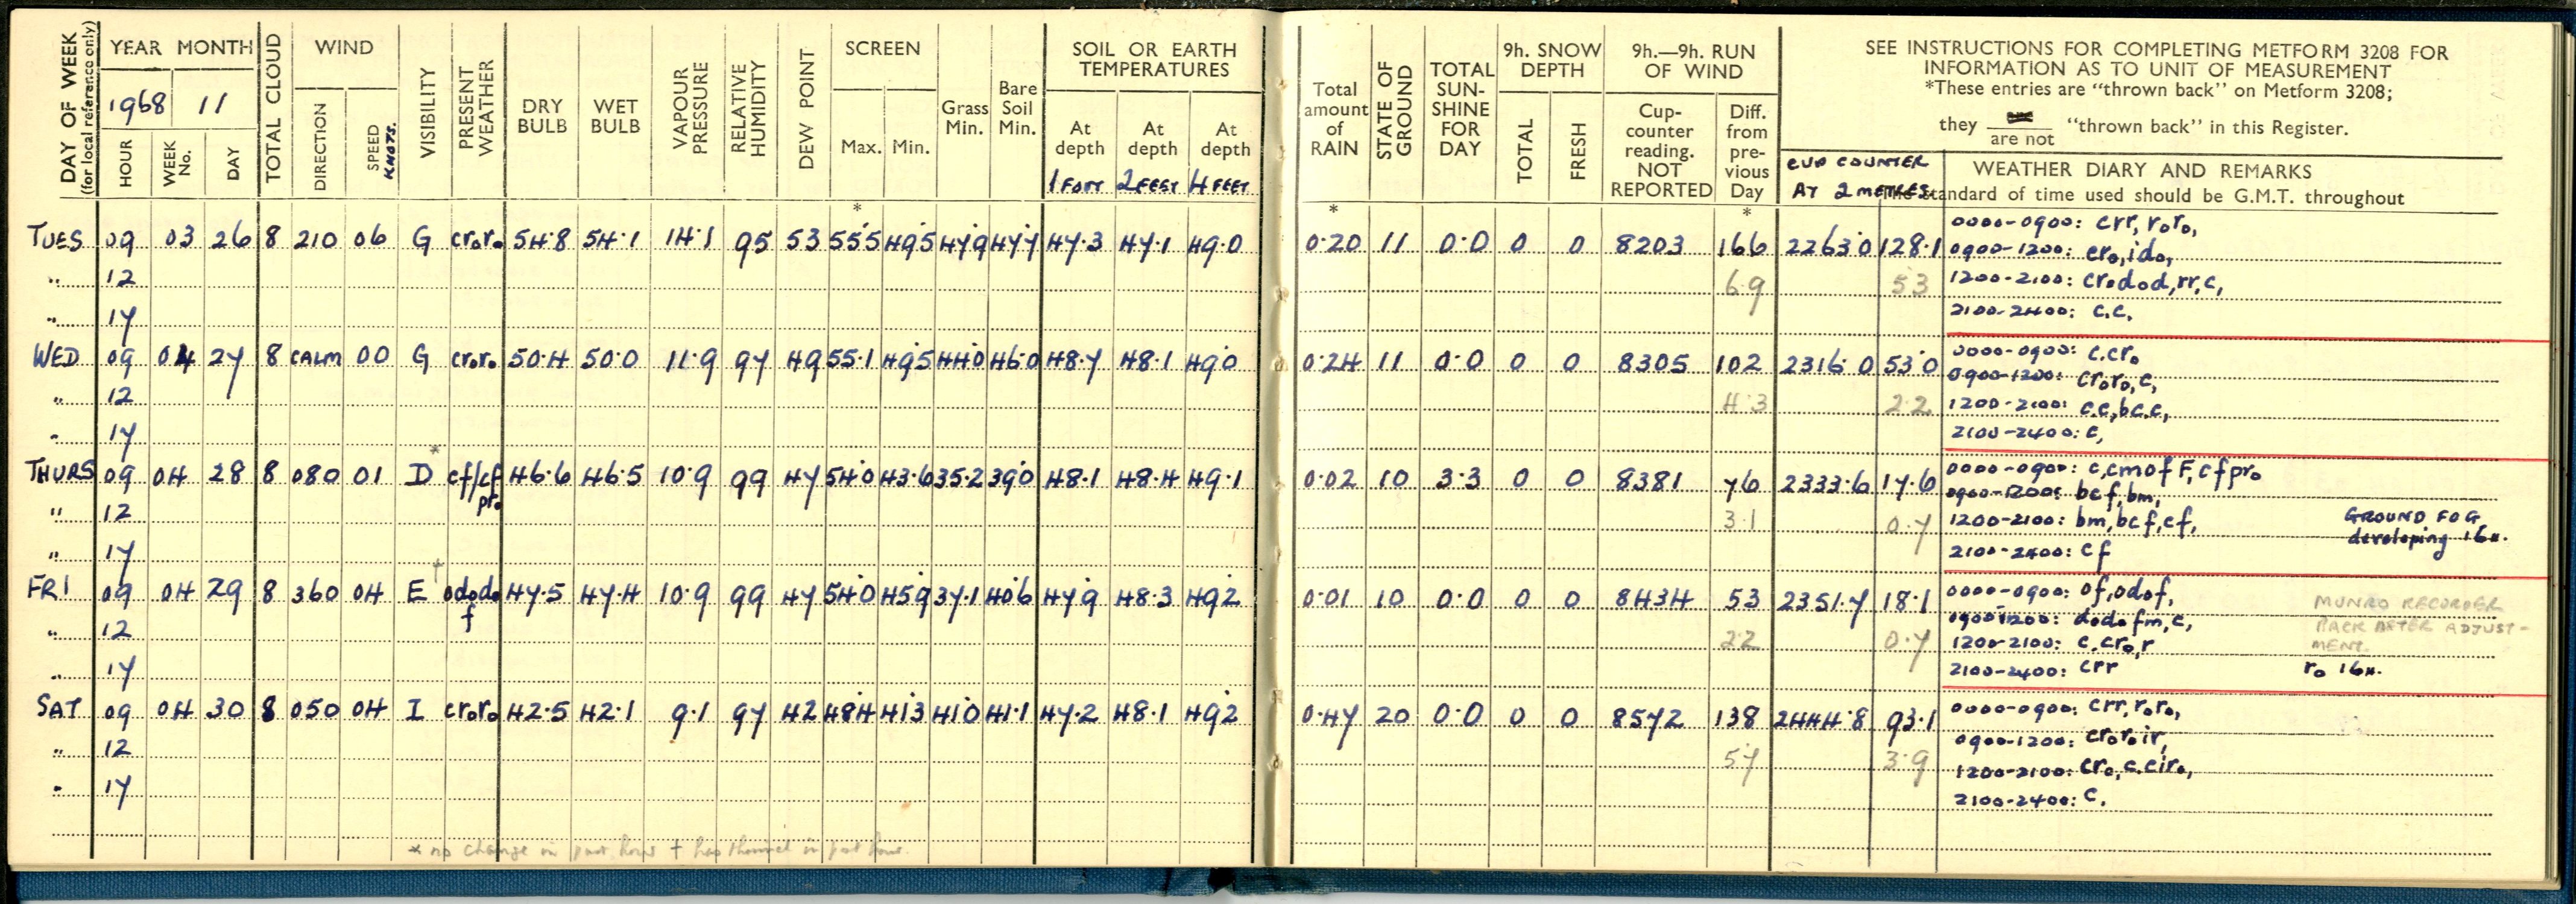 DAY OF WEEK (for local reference only)
YEAR MONTH
1968 11
HOUR WEEK No. DAY
TOTAL CLOUD
WIND
DIRECTION SPEED KNOTS.
VISIBILITY
PRESENT WEATHER
DRY BULB
WET BULB
VAPOUR PRESSURE
RELATIVE HUMIDITY
DEW POINT
SCREEN
Max. Min.
Grass Min.
Bare Soil Min.
SOIL OR EARTH TEMPERATURES
At depth At depth At depth
1 FOOT 2 FEET 4 FEET
Total amount of RAIN
STATE OF GROUND
TOTAL SUN-SHINE FOR DAY
9h. SNOW DEPTH
TOTAL FRESH
9h.—9h. RUN OF WIND
Cup-counter reading. NOT REPORTED
Diff. from pre-vious Day
SEE INSTRUCTIONS FOR COMPLETING METFORM 3208 FOR
INFORMATION AS TO UNIT OF MEASUREMENT
*These entries are "thrown back" on Metform 3208;
they are not "thrown back" in this Register.
CUP COUNTER
AT 2 METRES
WEATHER DIARY AND REMARKS
standard of time used should be G.M.T. throughout
* * *
TUES 09 03 26 8 210 06 G cr₀r₀ 54·8 54·1 14·1 95 53 55·5 49·5 47·9 47·7 47·3 47·1 49·0 0·20 11 0·0 0 0 8203 166 2263·0 128·1 0000-0900: crr, r₀r₀,
0900-1200: cr₀, id₀,
" 12 6·9 5·3 1200-2100: cr₀d₀d, rr, c,
" 17 2100-2400: c.c,
WED 09 04 27 8 CALM 00 G cr₀r₀ 50·4 50·0 11·9 97 49 55·1 49·5 44·0 46·0 48·7 48·1 49·0 0·24 11 0·0 0 0 8305 102 2316·0 53·0 0000-0900: c.cr₀
0900-1200: cr₀r₀, c,
" 12 4·3 2·2 1200-2100: c.c, bc.c,
" 17 2100-2400: c,
THURS 09 04 28 8 080 01 D* cf/cf pr₀ 46·6 46·5 10·9 99 47 54·0 43·6 35·2 39·0 48·1 48·4 49·1 0·02 10 3·3 0 0 8381 76 2333·6 17·6 0000-0900: c, cm0f F, cfpr₀
0900-1200: bcf, bm,
" 12 3·1 0·7 1200-2100: bm, bcf, cf, GROUND FOG
developing 16H.
" 17 2100-2400: cf
FRI 09 04 29 8 360 04 E† od₀d₀ f 47·5 47·4 10·9 99 47 54·0 45·9 37·1 40·6 47·9 48·3 49·2 0·01 10 0·0 0 0 8434 53 2351·7 18·1 0000-0900: of, od₀f, MUNRO RECORDER
0900-1200: d₀d₀fm, c, BACK AFTER ADJUST-
" 12 2·2 0·7 1200-2100: c.cr₀, r MENT.
" 17 2100-2400: crr r₀ 16H.
SAT 09 04 30 8 050 04 I cr₀r₀ 42·5 42·1 9·1 97 42 48·4 41·3 41·0 41·1 47·2 48·1 49·2 0·47 20 0·0 0 0 8572 138 2444·8 93·1 0000-0900: crr, r₀r₀,
0900-1200: cr₀r₀ir,
" 12 5·7 3·9 1200-2100: cr₀, c.cir₀,
" 17 2100-2400: c,
* no change in past hour † has thinned in past hour.